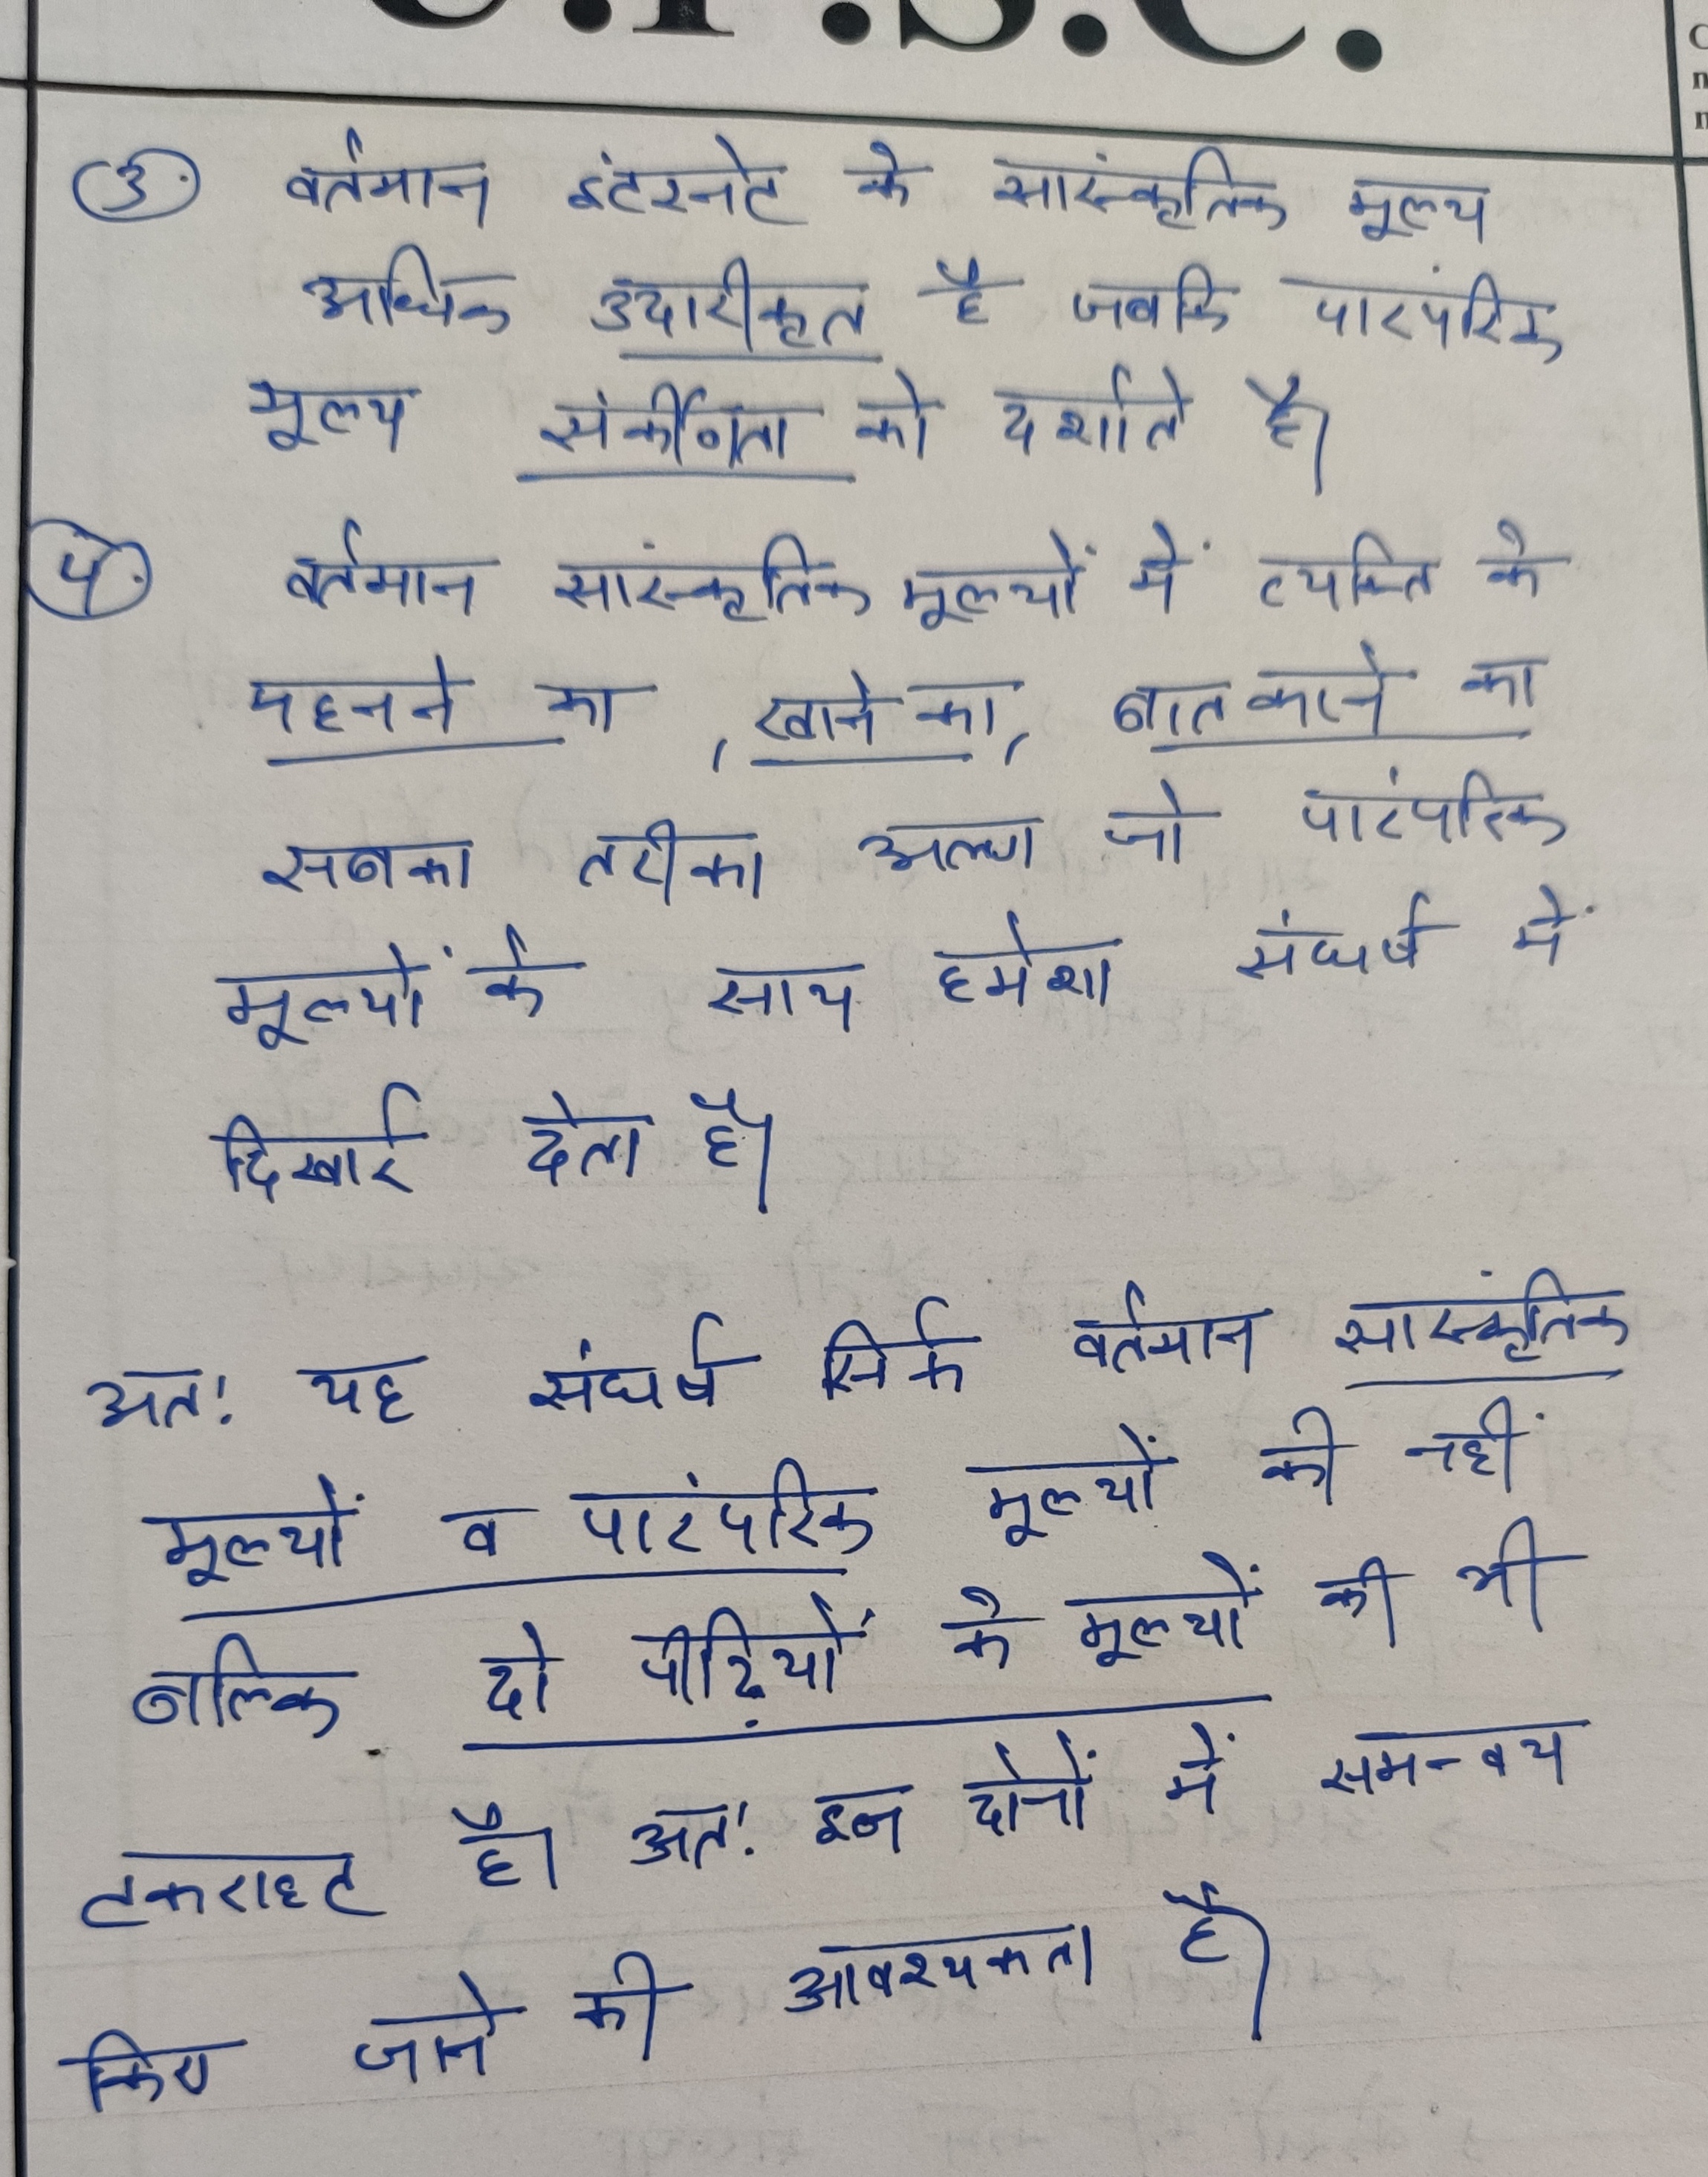 U.P.S.C.
3. वर्तमान इंटरनेट के सांस्कृतिक मूल्य
अधिक उदारीकृत है जबकि पारंपरिक
मूल्य संर्कीणता को दर्शाते है।
4. वर्तमान सांस्कृतिक मूल्यों में व्यक्ति के
पहनने का, खाने का, बात करने का
सबका तरीका अलग जो पारंपरिक
मूल्यों के साथ हमेशा संघर्ष में
दिखाई देता है।
अत: यह संघर्ष सिर्फ वर्तमान सांस्कृतिक
मूल्यों व पारंपरिक मूल्यों की नहीं
बल्कि दो पीढ़ियों के मूल्यों की भी
टकराहट है। अत: इन दोनों में समन्वय
किए जाने की आवश्यकता है।